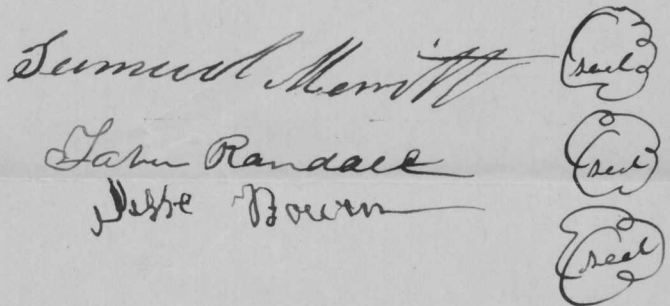 Samuel Merritt seal
Taber Randall seal
Jesse Bourn seal